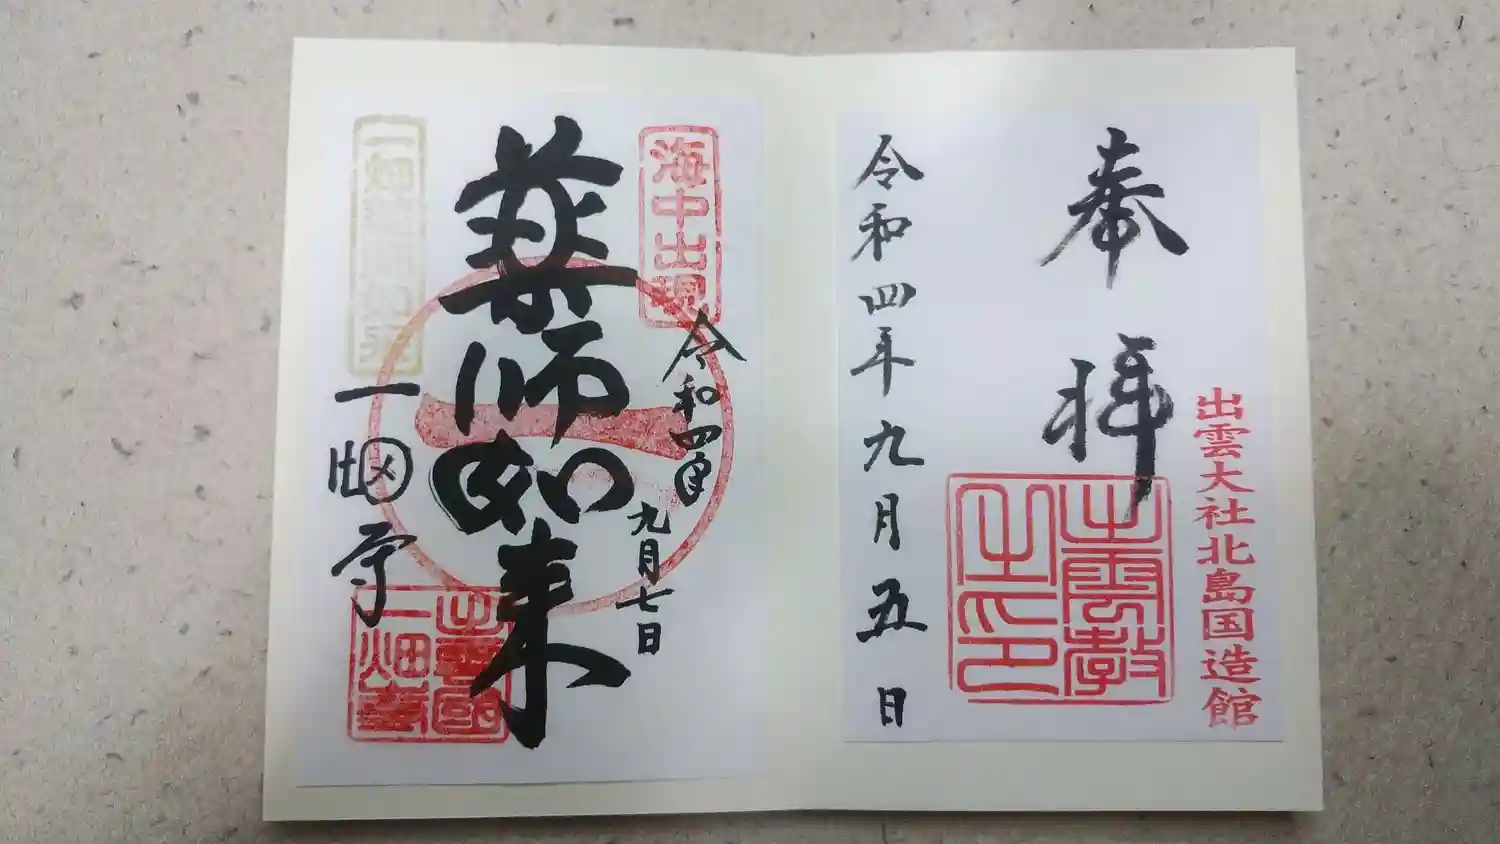 奉拝
出雲大社北島国造館
出雲教
之印
令和四年九月五日
海中出現
令和四年
九月七日
薬師如来
一畑薬師如来
一畑寺
出雲國
一畑寺